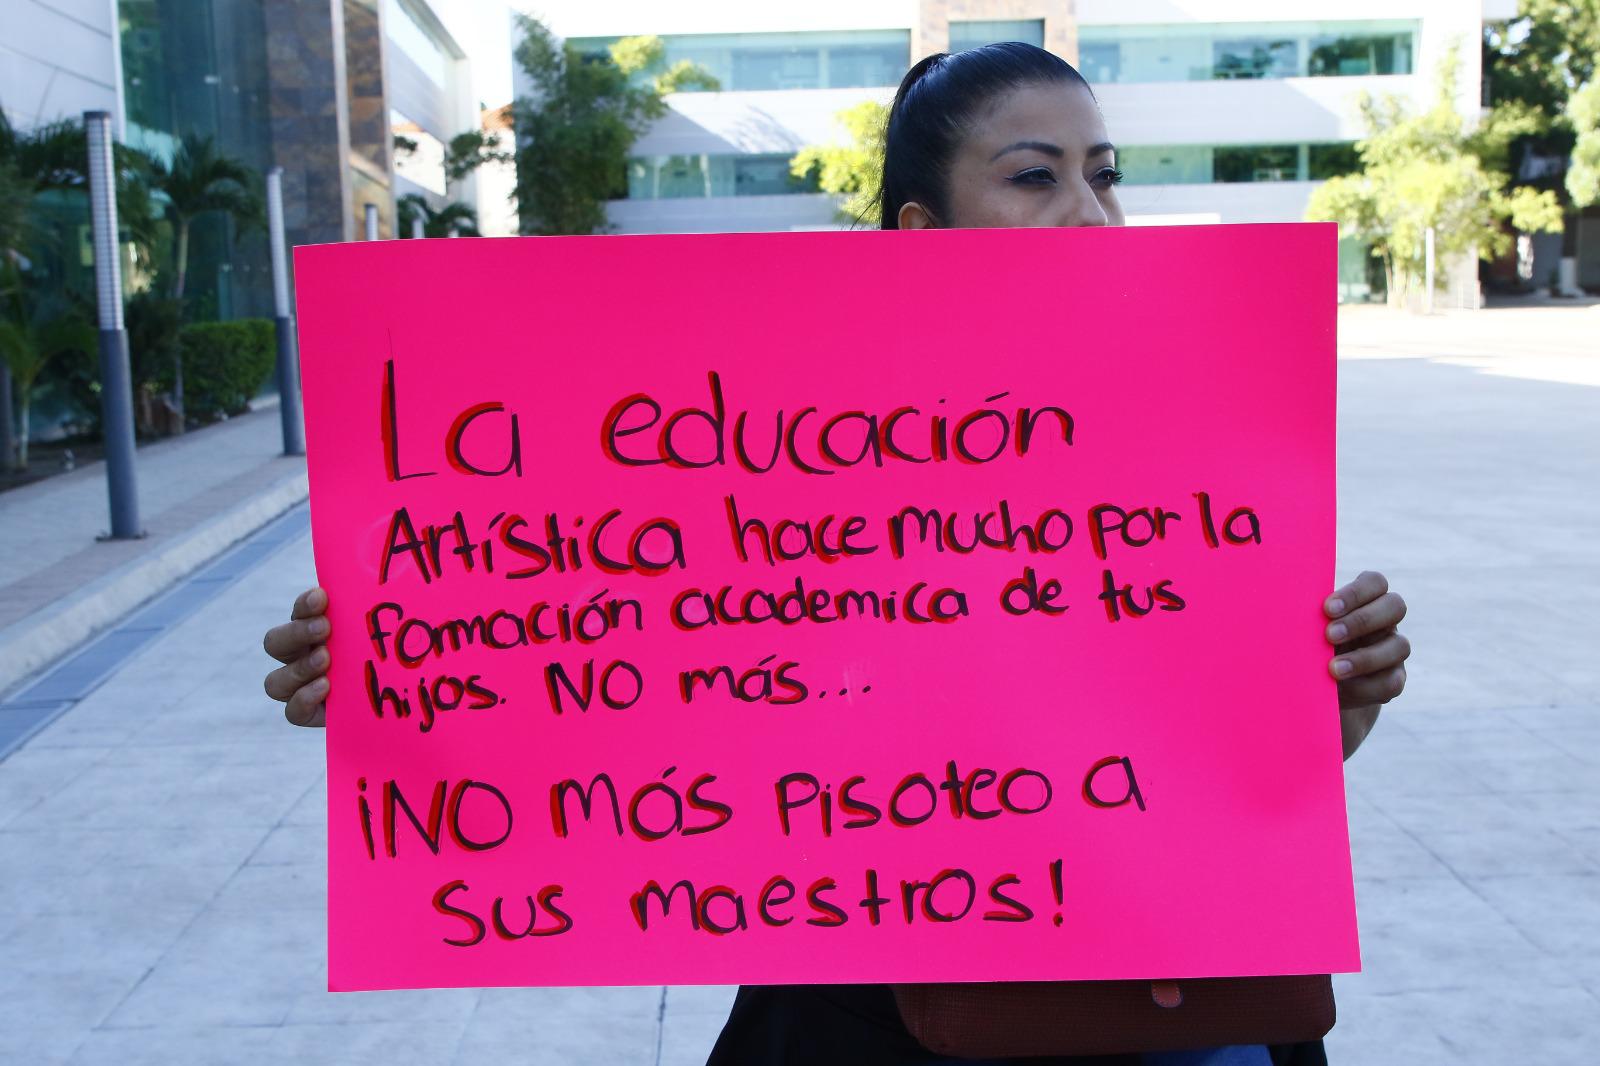 La educación
Artística hace mucho por la
formación academica de tus
hijos. NO más...
¡NO más pisoteo a
sus maestros!